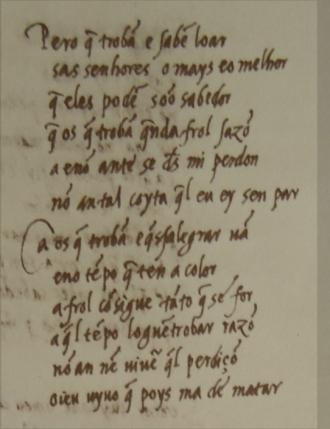 Pero q̃ trobã e sabẽ loar
sas senhores o mays e o melhor
q̃ eles podẽ sóó sabedor
q̃ os q̃ trobã q̃nda frol sazõ
a e nõ ante se d's mi perdon
nõ an tal coyta q̃l eu ey sen par
Ca os q̃ trobã e q̃ ss alegrar uã
eno tẽpo q̃ ten a color
a frol cõsigue tãto q̃ se for
a q̃l tẽpo logu en trobar razõ
nõ an nẽ uiuẽ q̃l perdiçõ
oieu uyuo q̃ poys ma dé matar